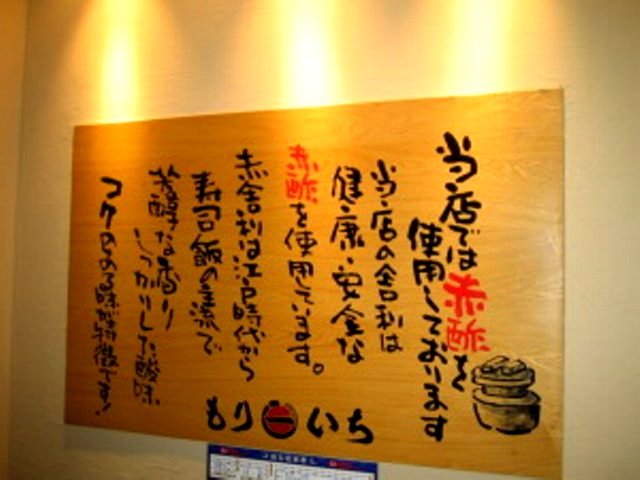 当店では赤酢を
使用しております
当店の舎利は
健康・安全な
赤酢を使用しています。
赤舎利は江戸時代から
寿司飯の主流で
芳醇な香り
しっかりした酸味
コクのある味が特徴です!
もり一いち